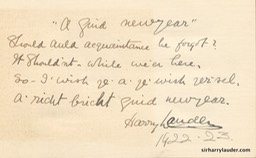 "A guid newyear"
Should auld acquaintance be forgot?
It Shouldn't - While we're here.
So - I wish ye. a' ye' wish yer'sel.
A richt bricht guid newyear.
Harry Lauder
1922-23.
sirharrylauder.com